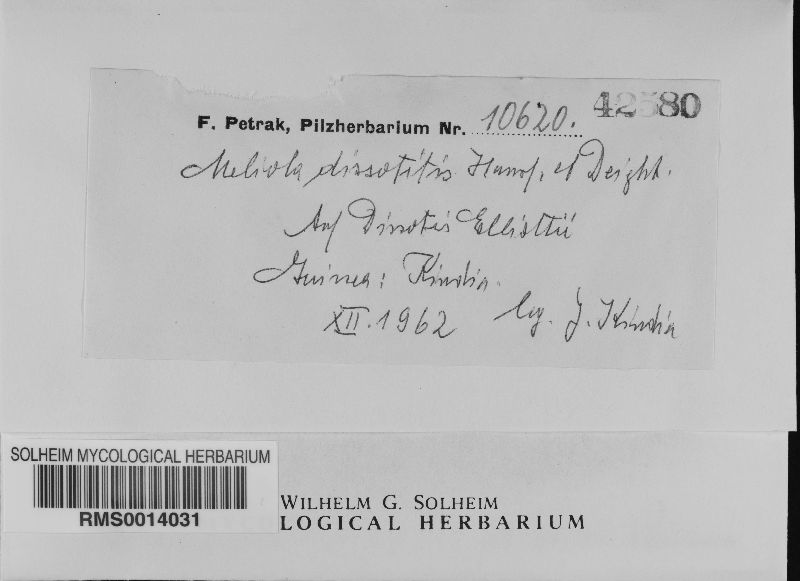 42580
F. Petrak, Pilzherbarium Nr. 10620.
Meliola dissotitis Hansf. et Deight.
Auf Dissotis Ellisttii
Guinea: Kindia.
XII. 1962 leg. J. Kindia
SOLHEIM MYCOLOGICAL HERBARIUM
RMS0014031
WILHELM G. SOLHEIM
LOGICAL HERBARIUM